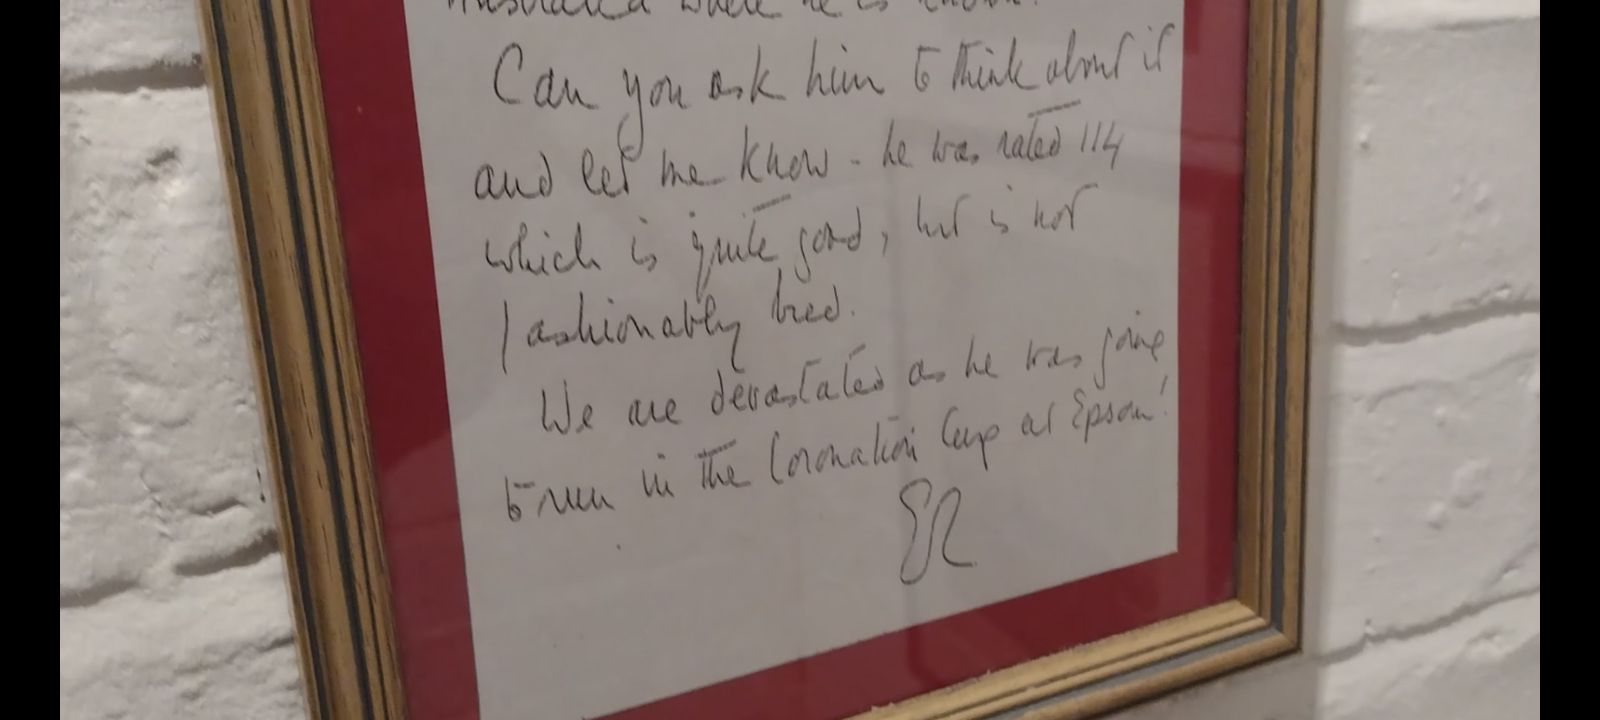 where he is known.
Can you ask him to think about it
and let me know - he was rated 114
which is quite good, but is not
fashionably bred.
We are devastated as he was going
to run in the Coronation Cup at Epsom!
ER